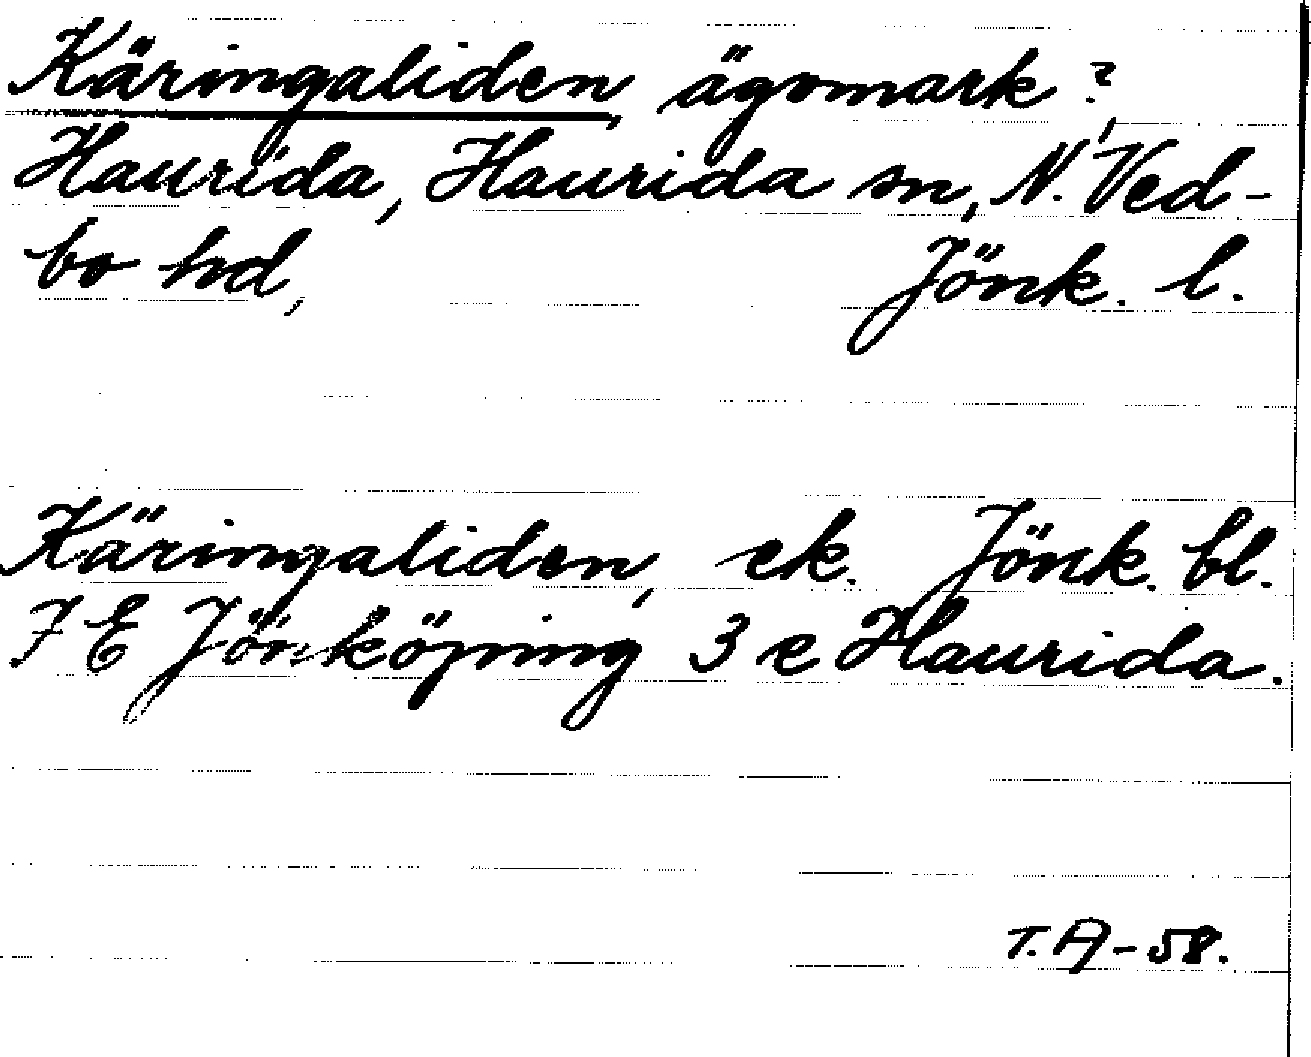 Käringaliden, ägomark?,
Haurida, Haurida sn, N. Ved-
bo hd, Jönk. l.
Käringaliden, ek. Jönk. bl.
7 E Jönköping 3 e Haurida.
T. A-58.